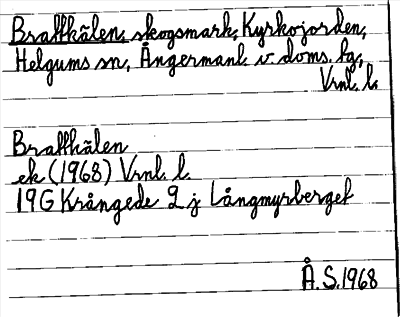 Brattkälen, skogsmark, Kyrkojorden,
Helgums sn, Ångermanl. v. doms. fg,
Vrnl. l.
Brattkälen
ek (1968) Vrnl. l.
19G Krångede 2 j Långmyrberget
Å.S. 1968